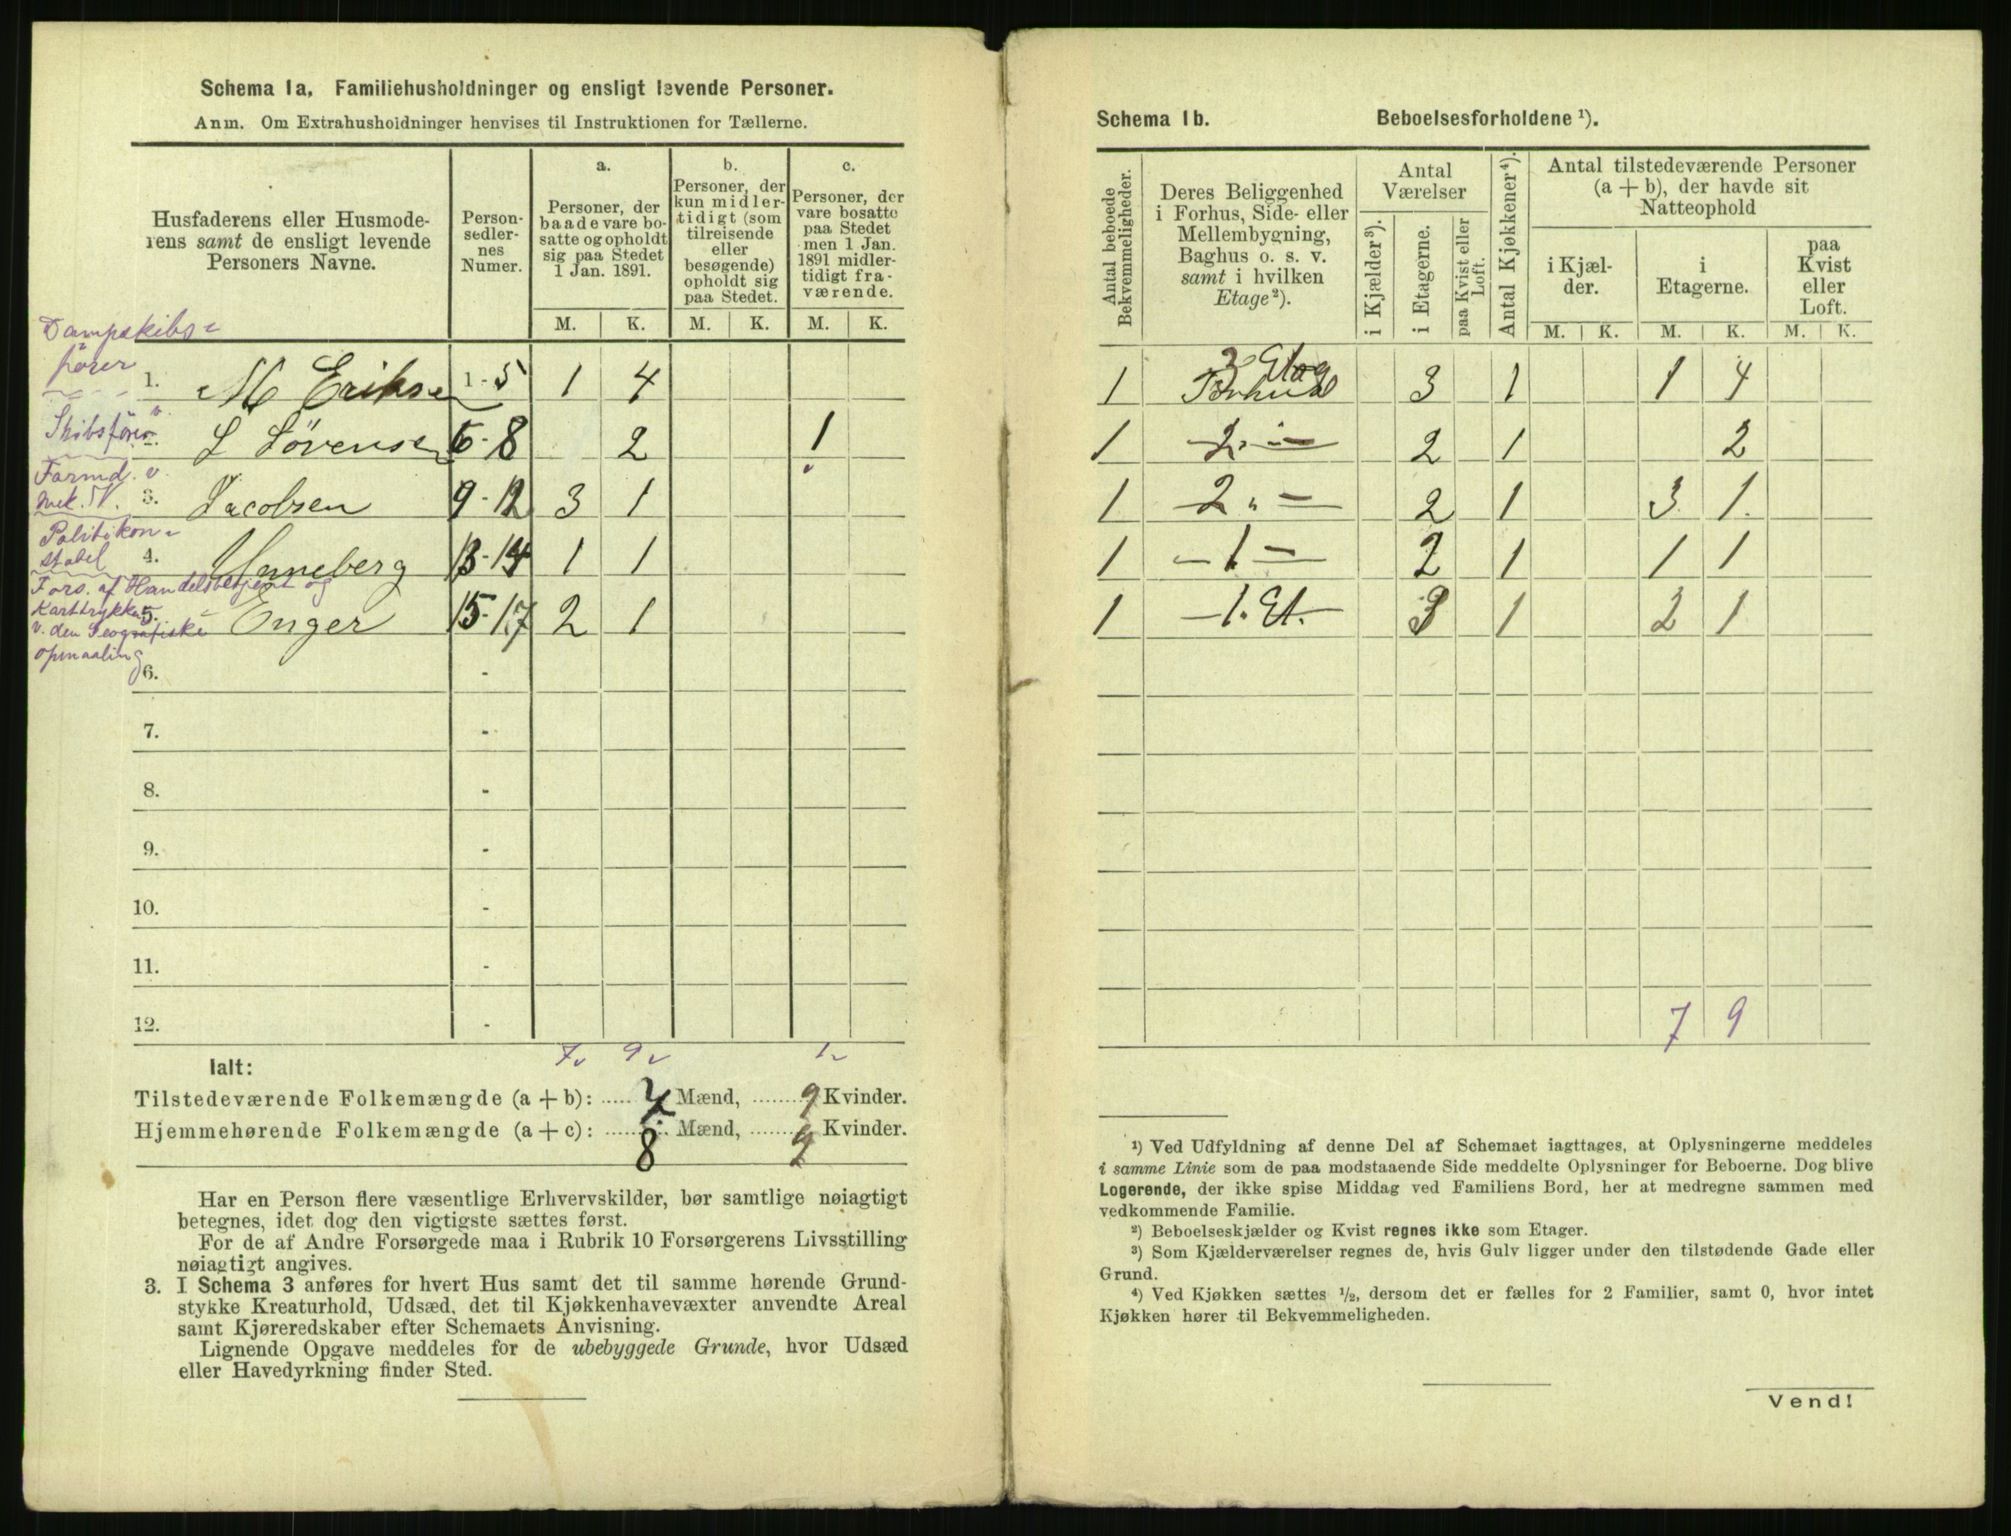 Schema 1a. Familiehusholdninger og ensligt levende Personer.
Anm. Om Extrahusholdninger henvises til Instruktionen for Tællerne.
Husfaderens eller Husmode-
rens samt de ensligt levende
Personers Navne.
Person-
sedler-
nes
Numer.
a.
Personer, der
baade vare bo-
satte og opholdt
sig paa Stedet
1 Jan. 1891.
b.
Personer, der
kun midler-
tidigt (som
tilreisende
eller
besøgende)
opholdt sig
paa Stedet.
c.
Personer, der
vare bosatte
paa Stedet
men 1 Jan.
1891 midler-
tidigt fra-
værende.
M. K. M. K. M. K.
Dampskibs-
fører
1. M Eriks 1-5 1 4
Skibsfører
2. L Sørens 6-8 2 1
Formd. v.
mek. V.
3. Jacobsen 9-12 3 1
Politikon-
stabel
4. Unneberg 13-14 1 1
Fors. af Handelsbetjent og
Karttrykker
v. den Geografiske
opmaaling
5. Enger 15-17 2 1
6. -
7. -
8. -
9. -
10. -
11. -
12. -
7 9 1
Ialt:
Tilstedeværende Folkemængde (a + b): 7 Mænd, 9 Kvinder.
Hjemmehørende Folkemængde (a + c): 8 Mænd, 9 Kvinder.
Har en Person flere væsentlige Erhvervskilder, bør samtlige nøiagtigt
betegnes, idet dog den vigtigste sættes først.
For de af Andre Forsørgede maa i Rubrik 10 Forsørgerens Livsstilling
nøiagtigt angives.
3. I Schema 3 anføres for hvert Hus samt det til samme hørende Grund-
stykke Kreaturhold, Udsæd, det til Kjøkkenhavevæxter anvendte Areal
samt Kjøreredskaber efter Schemaets Anvisning.
Lignende Opgave meddeles for de ubebyggede Grunde, hvor Udsæd
eller Havedyrkning finder Sted.
Schema 1b. Beboelsesforholdene ¹).
Antal beboede
Bekvemmeligheder.
Deres Beliggenhed
i Forhus, Side- eller
Mellembygning,
Baghus o. s. v.
samt i hvilken
Etage²).
Antal
Værelser
i Kjælder³).
i Etagerne.
paa Kvist eller
Loft.
Antal Kjøkkener⁴).
Antal tilstedeværende Personer
(a + b), der havde sit
Natteophold
i Kjæl-
der.
i
Etagerne.
paa
Kvist
eller
Loft.
M. K. M. K. M. K.
1 3 Etag
Forhus 3 1 1 4
1 2. - 2 1 2
1 2 " - 2 1 3 1
1 - 1 - 2 1 1 1
1 - 1. Et. 3 1 2 1
7 9
¹) Ved Udfyldning af denne Del af Schemaet iagttages, at Oplysningerne meddeles
i samme Linie som de paa modstaaende Side meddelte Oplysninger for Beboerne. Dog blive
Logerende, der ikke spise Middag ved Familiens Bord, her at medregne sammen med
vedkommende Familie.
²) Beboelseskjælder og Kvist regnes ikke som Etager.
³) Som Kjælderværelser regnes de, hvis Gulv ligger under den tilstødende Gade eller
Grund.
⁴) Ved Kjøkken sættes ½, dersom det er fælles for 2 Familier, samt 0, hvor intet
Kjøkken hører til Bekvemmeligheden.
Vend!